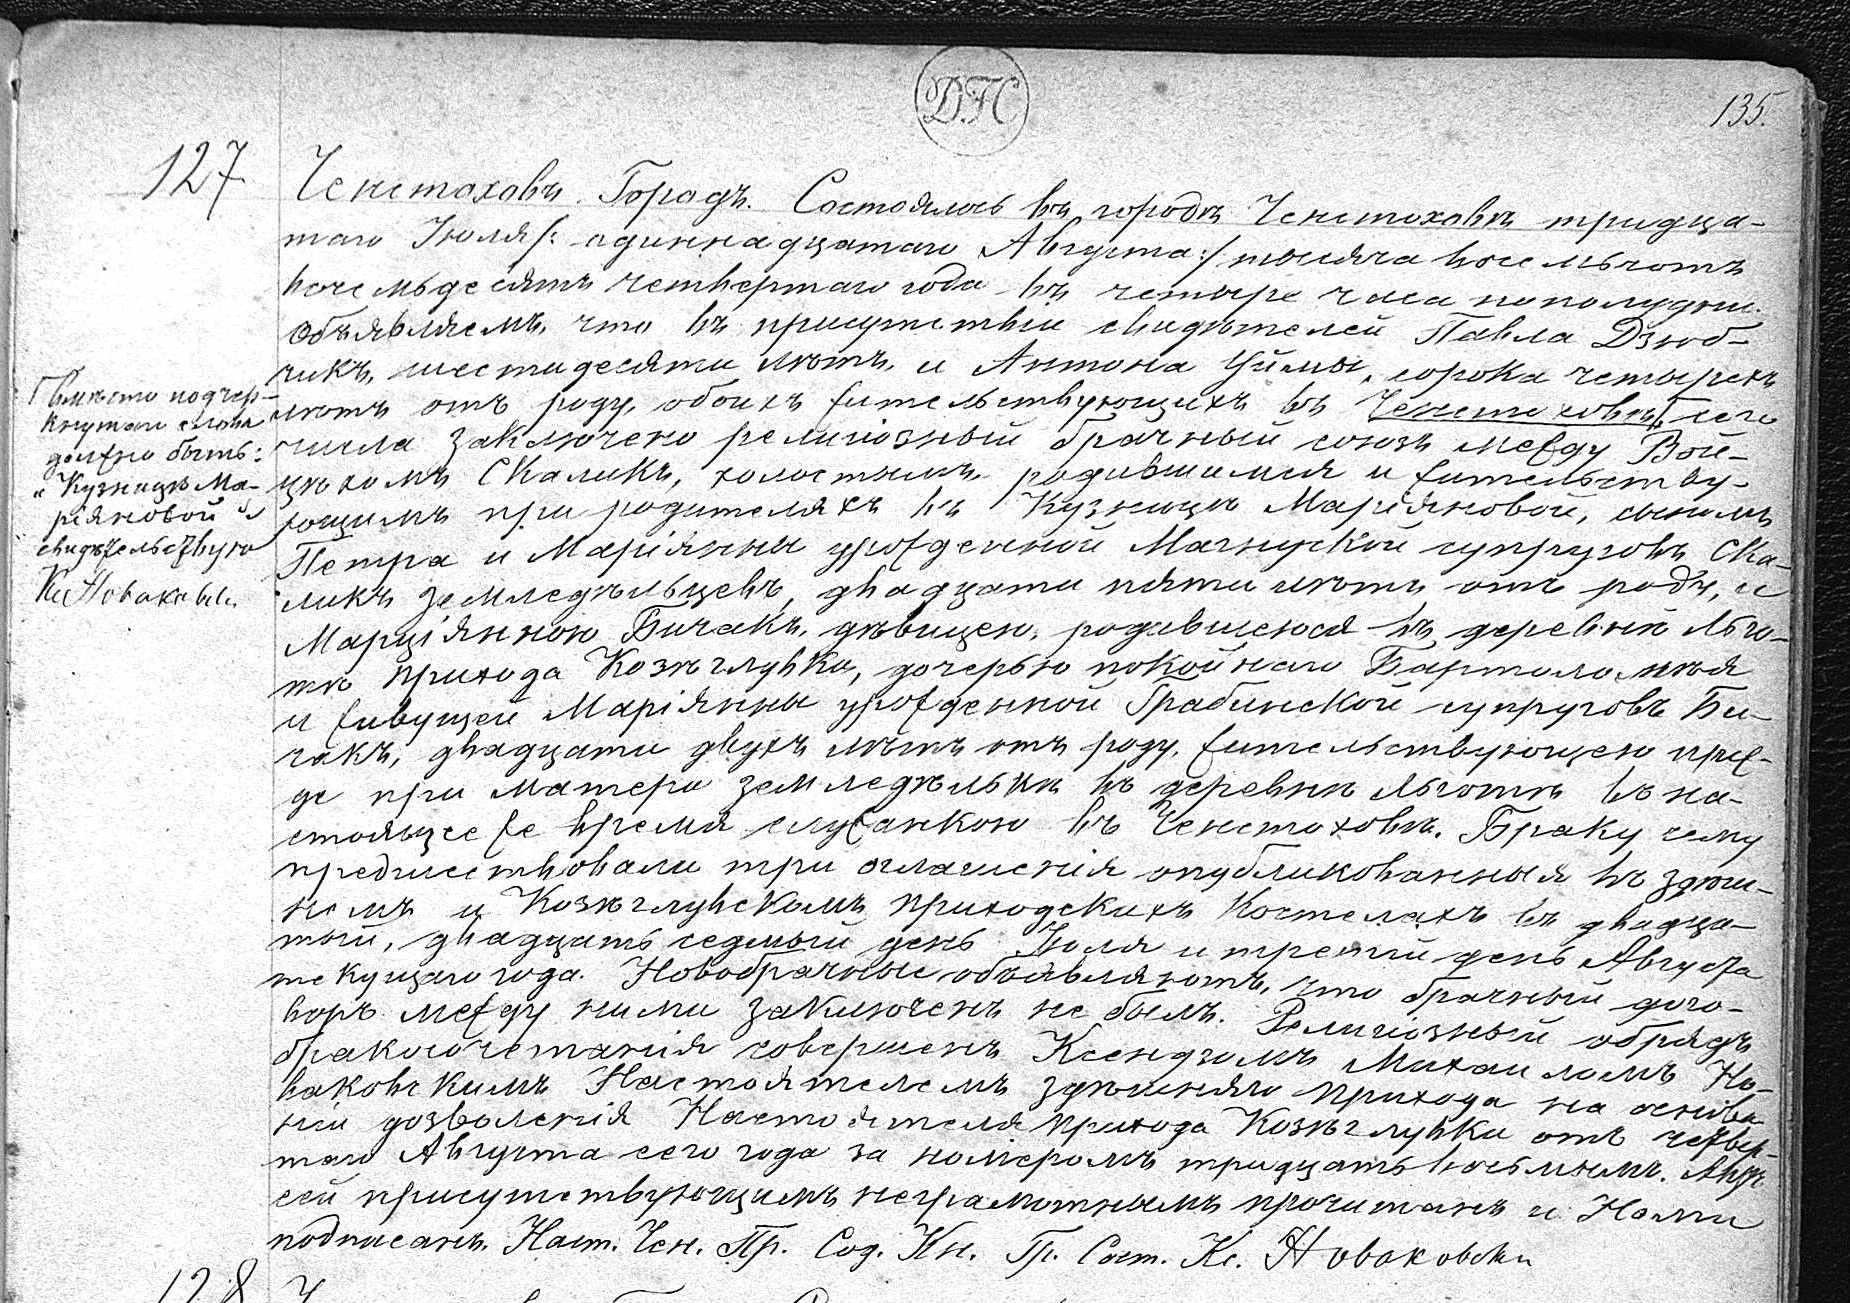 DFC
135.
127
Ченстоховъ Городъ. Состоялось въ городѣ Ченстоховѣ тридца-
таго Іюля /: одиннадцатаго Августа :/ тысяча восемьсотъ
восемьдесятъ четвертаго года въ четыре часа пополудни.
Объявляемъ, что въ присутствіи свидѣтелей Павла Дзюб-
чикъ, шестидесяти лѣтъ, и Антона Уймы, сорока четырехъ
лѣтъ отъ роду, обоихъ жительствующихъ въ Ченстоховѣ, сего
числа заключено религіозный брачный союзъ между Вой-
цѣхомъ Скаликъ, холостымъ, родившимся и жительству-
ющимъ при родителяхъ въ Кузницѣ Маріяновой, сыномъ
Петра и Маріянны урожденной Магнуской супруговъ Ска-
ликъ земледѣльцевъ, двадцати пяти лѣтъ отъ роду, и
Марціянною Бичакъ, дѣвицею, родившеюся въ деревнѣ Льго-
тѣ прихода Козѣглувки, дочерью покойнаго Бартоломѣя
и живущей Маріянны урожденной Грабинской супруговъ Би-
чакъ, двадцати двухъ лѣтъ отъ роду, жительствующею преж-
де при матери земледѣлькѣ въ деревнѣ Льготѣ въ на-
стоящее же время служанкою въ Ченстоховѣ. Браку сему
предшествовали три оглашенія опубликованныя въ здѣш-
немъ и Козѣглувскомъ приходскихъ костелахъ въ двадца-
тый, двадцать седмый день Іюля и третій день Августа
текущаго года. Новобрачные объявляютъ, что брачный дого-
воръ между ними заключенъ не былъ. Религіозный обрядъ
бракосочетанія совершенъ Ксендзомъ Михаиломъ Но-
ваковскимъ Настоятелемъ здѣшняго прихода на основа-
ніи дозволенія Настоятеля прихода Козѣглувки отъ четвер-
таго Августа сего года за номеромъ тридцать восьмымъ. Актъ
сей присутствующимъ неграмотнымъ прочитанъ и Нами
подписанъ. Наст. Чен. Пр. Сод. Кн. Гр. Сост. Кс. Новаковски
Вмѣсто подчер-
кнутаго слова
должно быть:
„Кузницѣ Ма-
ріяновой"
свидѣтельствую
Кс Новаковски
128